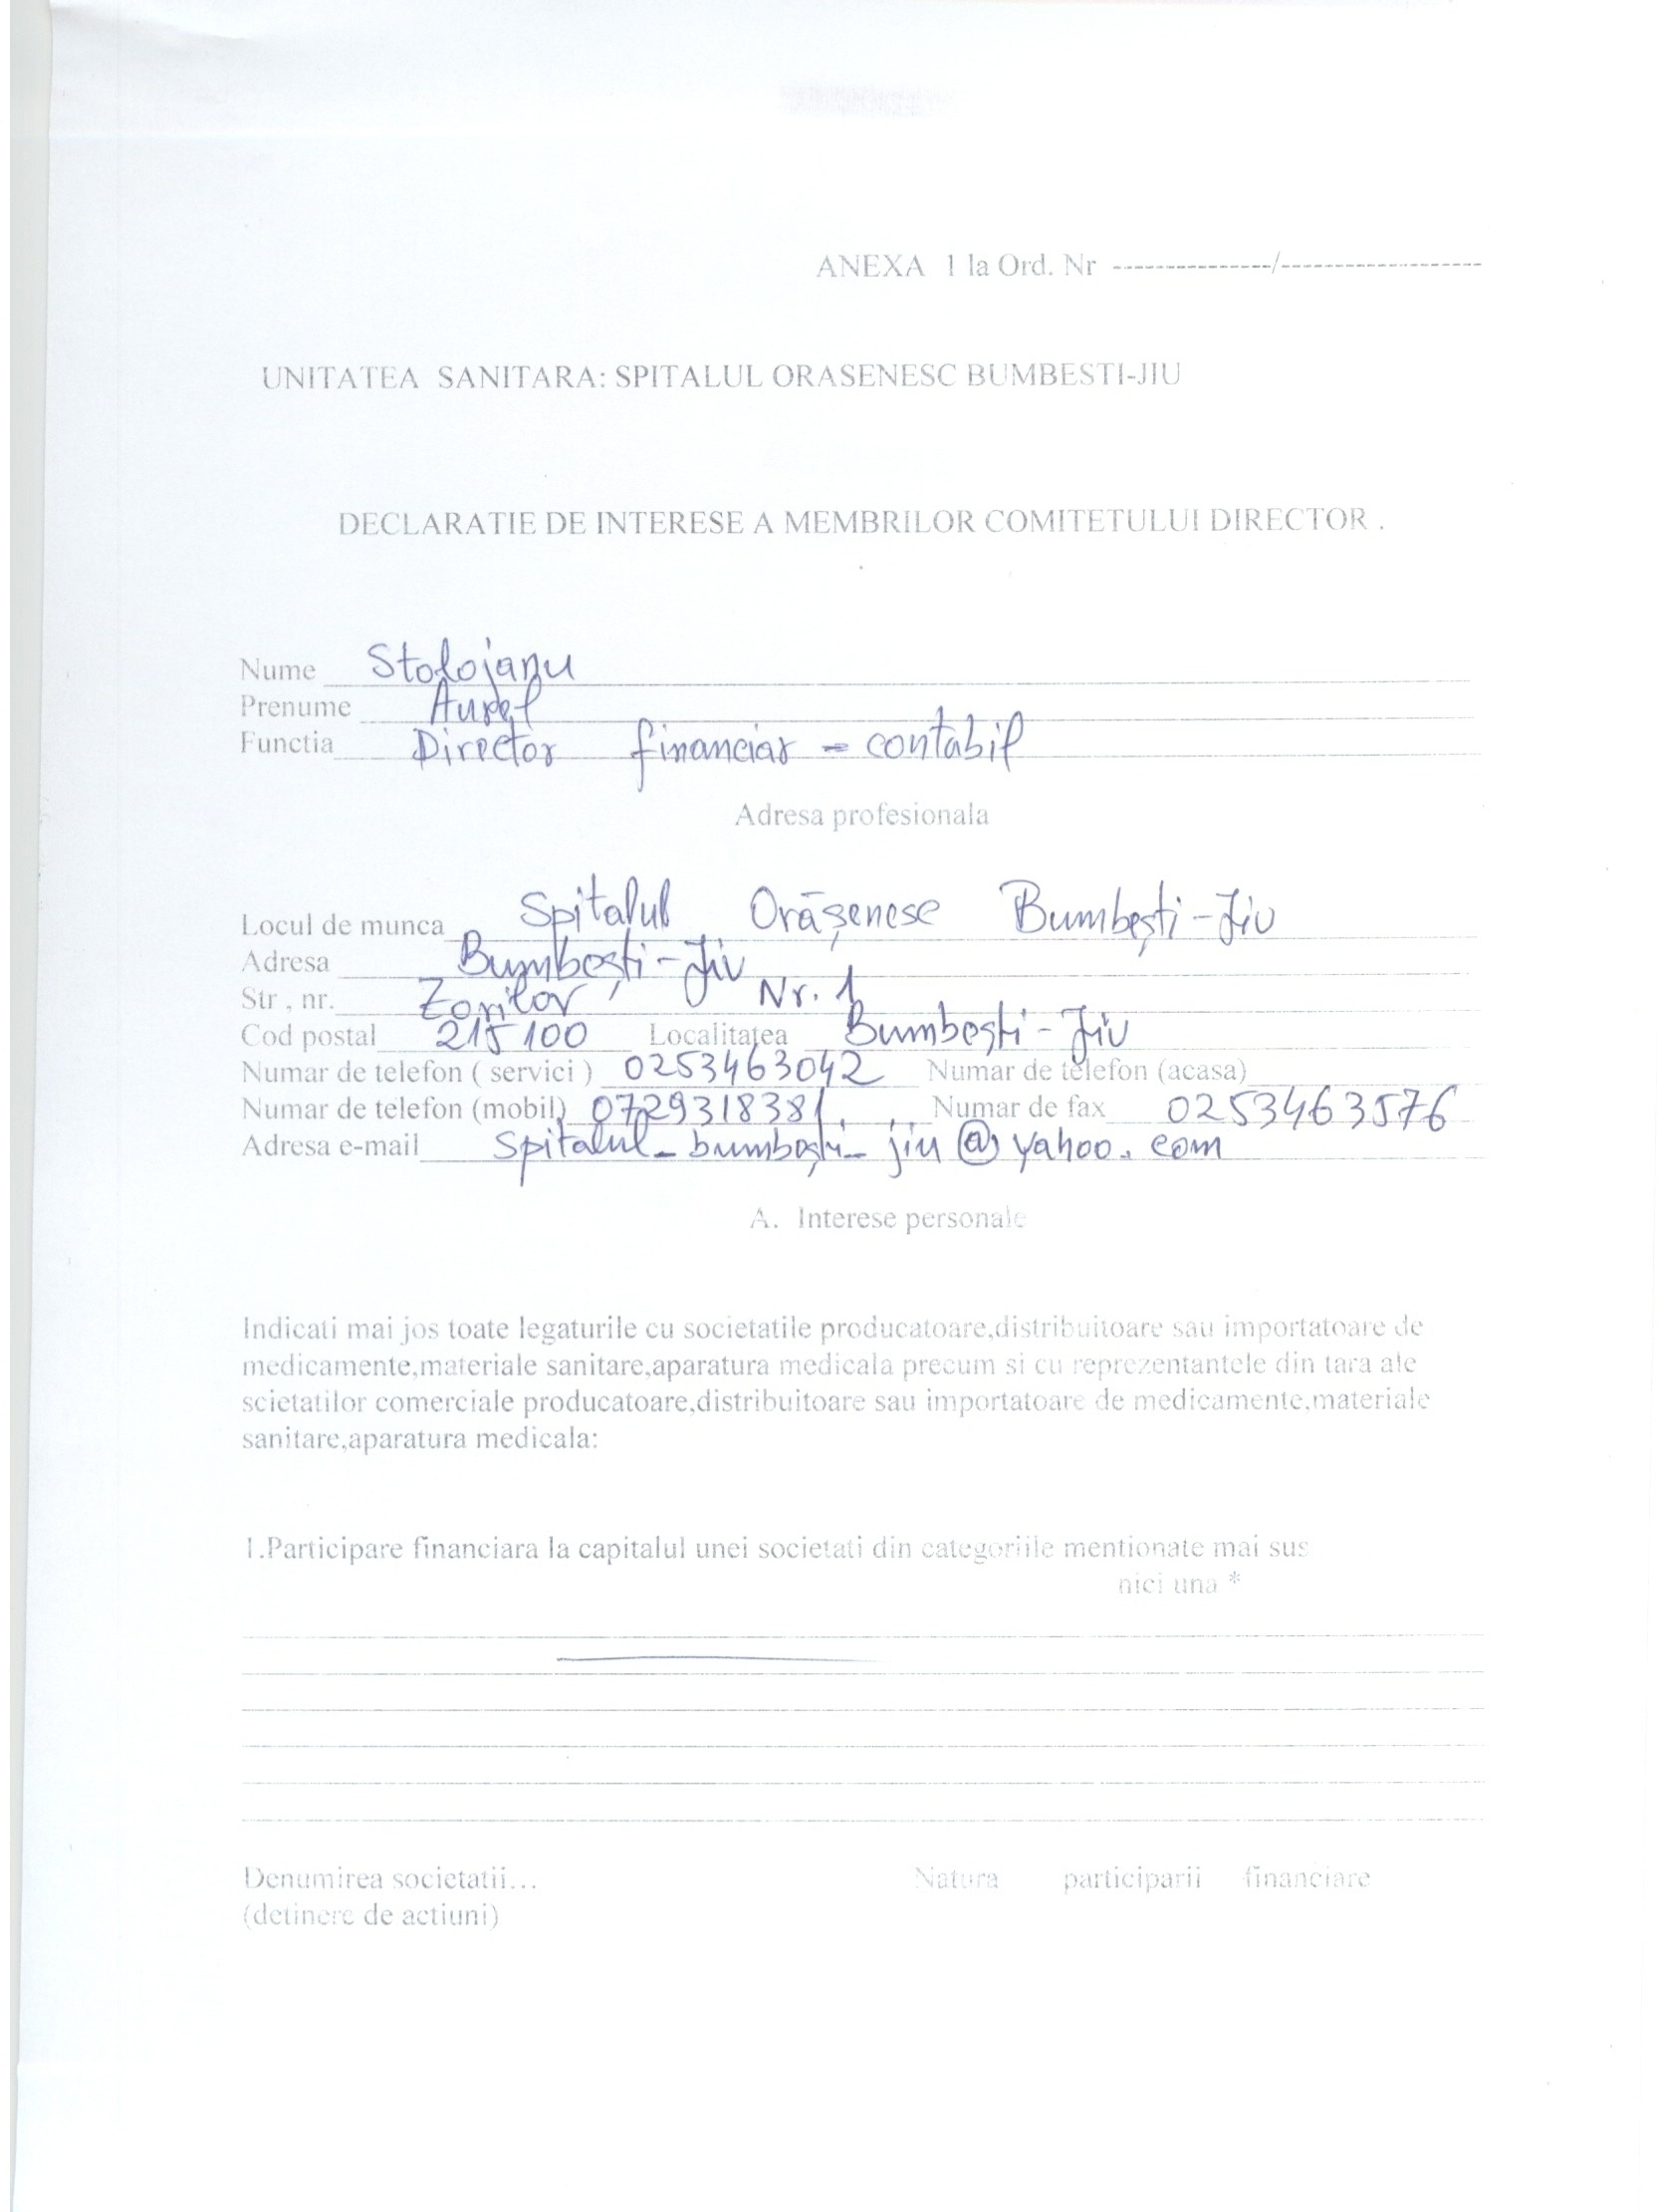 ANEXA 1 la Ord. Nr ---------------/-------------------
UNITATEA SANITARA: SPITALUL ORASENESC BUMBESTI-JIU
DECLARATIE DE INTERESE A MEMBRILOR COMITETULUI DIRECTOR .
Nume Stolojanu
Prenume Aurel
Functia Director financiar - contabil
Adresa profesionala
Locul de munca Spitalul Orășenesc Bumbești-Jiu
Adresa Bumbești-Jiu
Str , nr. Zorilor Nr. 1
Cod postal 215100 Localitatea Bumbești-Jiu
Numar de telefon ( servici ) 0253463042 Numar de telefon (acasa)
Numar de telefon (mobil) 0729318381 Numar de fax 0253463576
Adresa e-mail Spitalul_bumbești_jiu@yahoo.com
A. Interese personale
Indicati mai jos toate legaturile cu societatile producatoare,distribuitoare sau importatoare de
medicamente,materiale sanitare,aparatura medicala precum si cu reprezentantele din tara ale
scietatilor comerciale producatoare,distribuitoare sau importatoare de medicamente,materiale
sanitare,aparatura medicala:
1.Participare financiara la capitalul unei societati din categoriile mentionate mai sus
nici una *
Denumirea societatii... Natura participarii financiare
(detinere de actiuni)